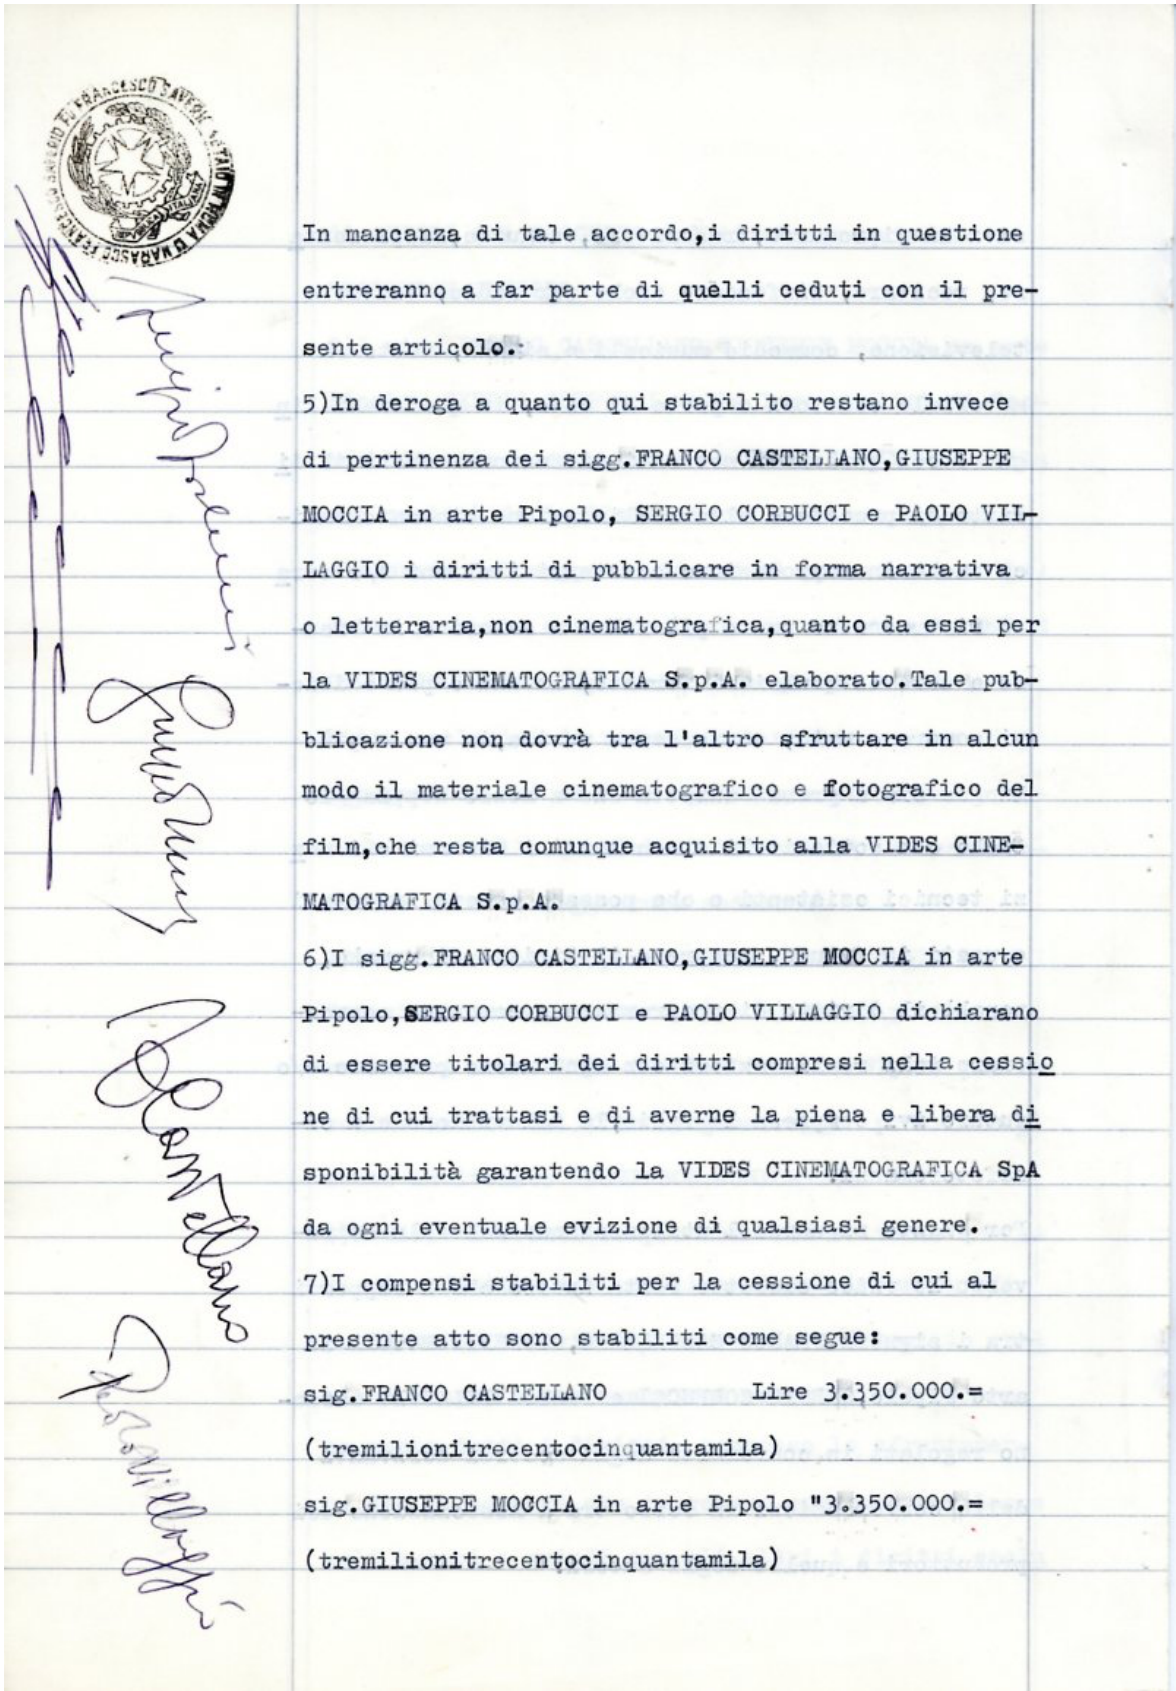 In mancanza di tale accordo,i diritti in questione
entreranno a far parte di quelli ceduti con il pre-
sente articolo.
5)In deroga a quanto qui stabilito restano invece
di pertinenza dei sigg.FRANCO CASTELLANO,GIUSEPPE
MOCCIA in arte Pipolo, SERGIO CORBUCCI e PAOLO VIL-
LAGGIO i diritti di pubblicare in forma narrativa
o letteraria,non cinematografica,quanto da essi per
la VIDES CINEMATOGRAFICA S.p.A. elaborato.Tale pub-
blicazione non dovrà tra l'altro sfruttare in alcun
modo il materiale cinematografico e fotografico del
film,che resta comunque acquisito alla VIDES CINE-
MATOGRAFICA S.p.A.
6)I sigg.FRANCO CASTELLANO,GIUSEPPE MOCCIA in arte
Pipolo,SERGIO CORBUCCI e PAOLO VILLAGGIO dichiarano
di essere titolari dei diritti compresi nella cessio
ne di cui trattasi e di averne la piena e libera di
sponibilità garantendo la VIDES CINEMATOGRAFICA SpA
da ogni eventuale evizione di qualsiasi genere.
7)I compensi stabiliti per la cessione di cui al
presente atto sono stabiliti come segue:
sig.FRANCO CASTELLANO Lire 3.350.000.=
(tremilionitrecentocinquantamila)
sig.GIUSEPPE MOCCIA in arte Pipolo "3.350.000.=
(tremilionitrecentocinquantamila)
Castellano
Paolo Villaggio